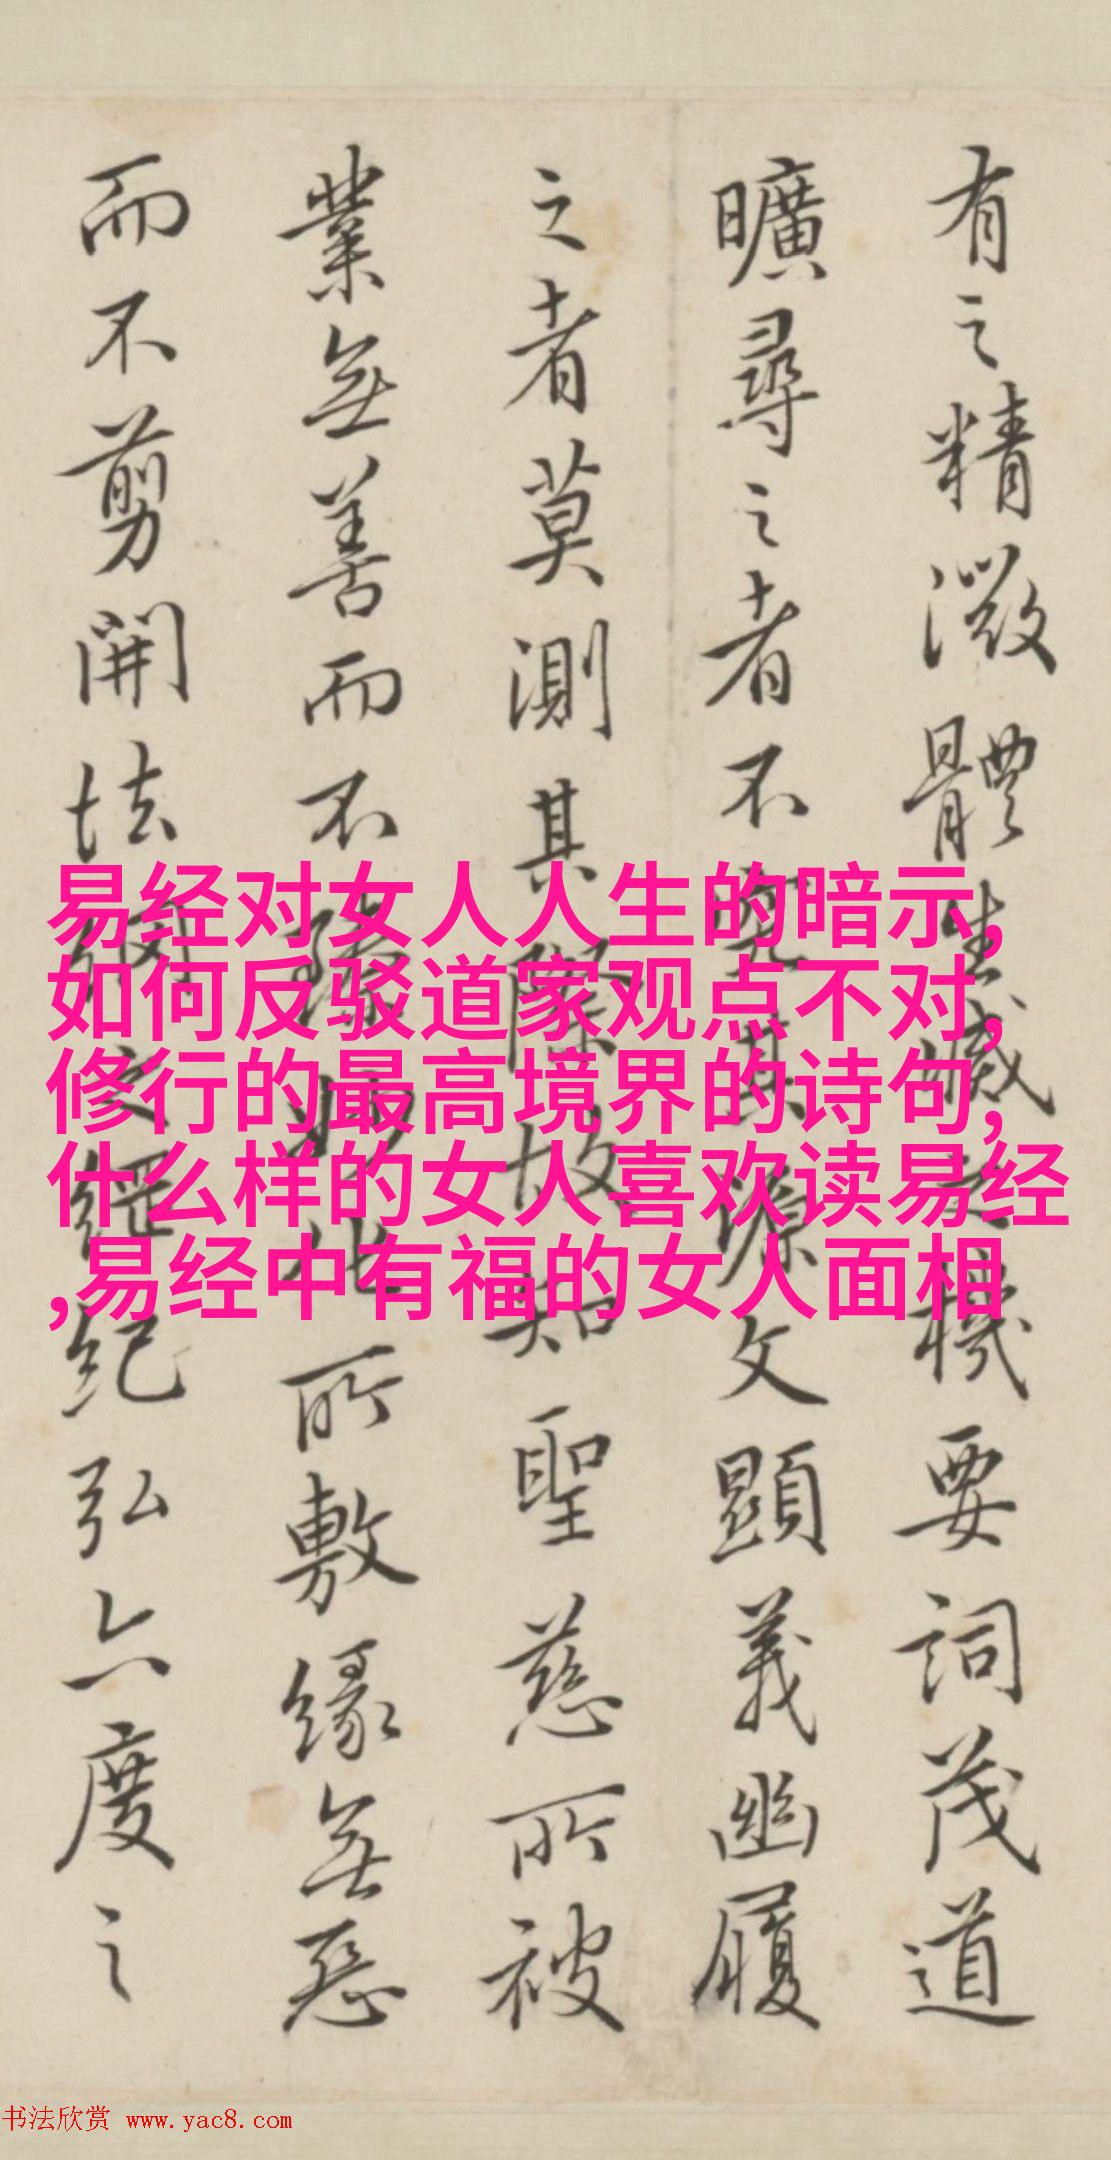 有之精微體生滅之機要詞茂道
曠尋之者不究其源文顯義幽履
之者莫測其際故知聖慈所被
業無善而不臻妙化所敷緣無惡
而不剪開法網之綱紀弘六度之
易经对女人人生的暗示,
如何反驳道家观点不对,
修行的最高境界的诗句,
什么样的女人喜欢读易经
,易经中有福的女人面相
书法欣赏 www.yac8.com